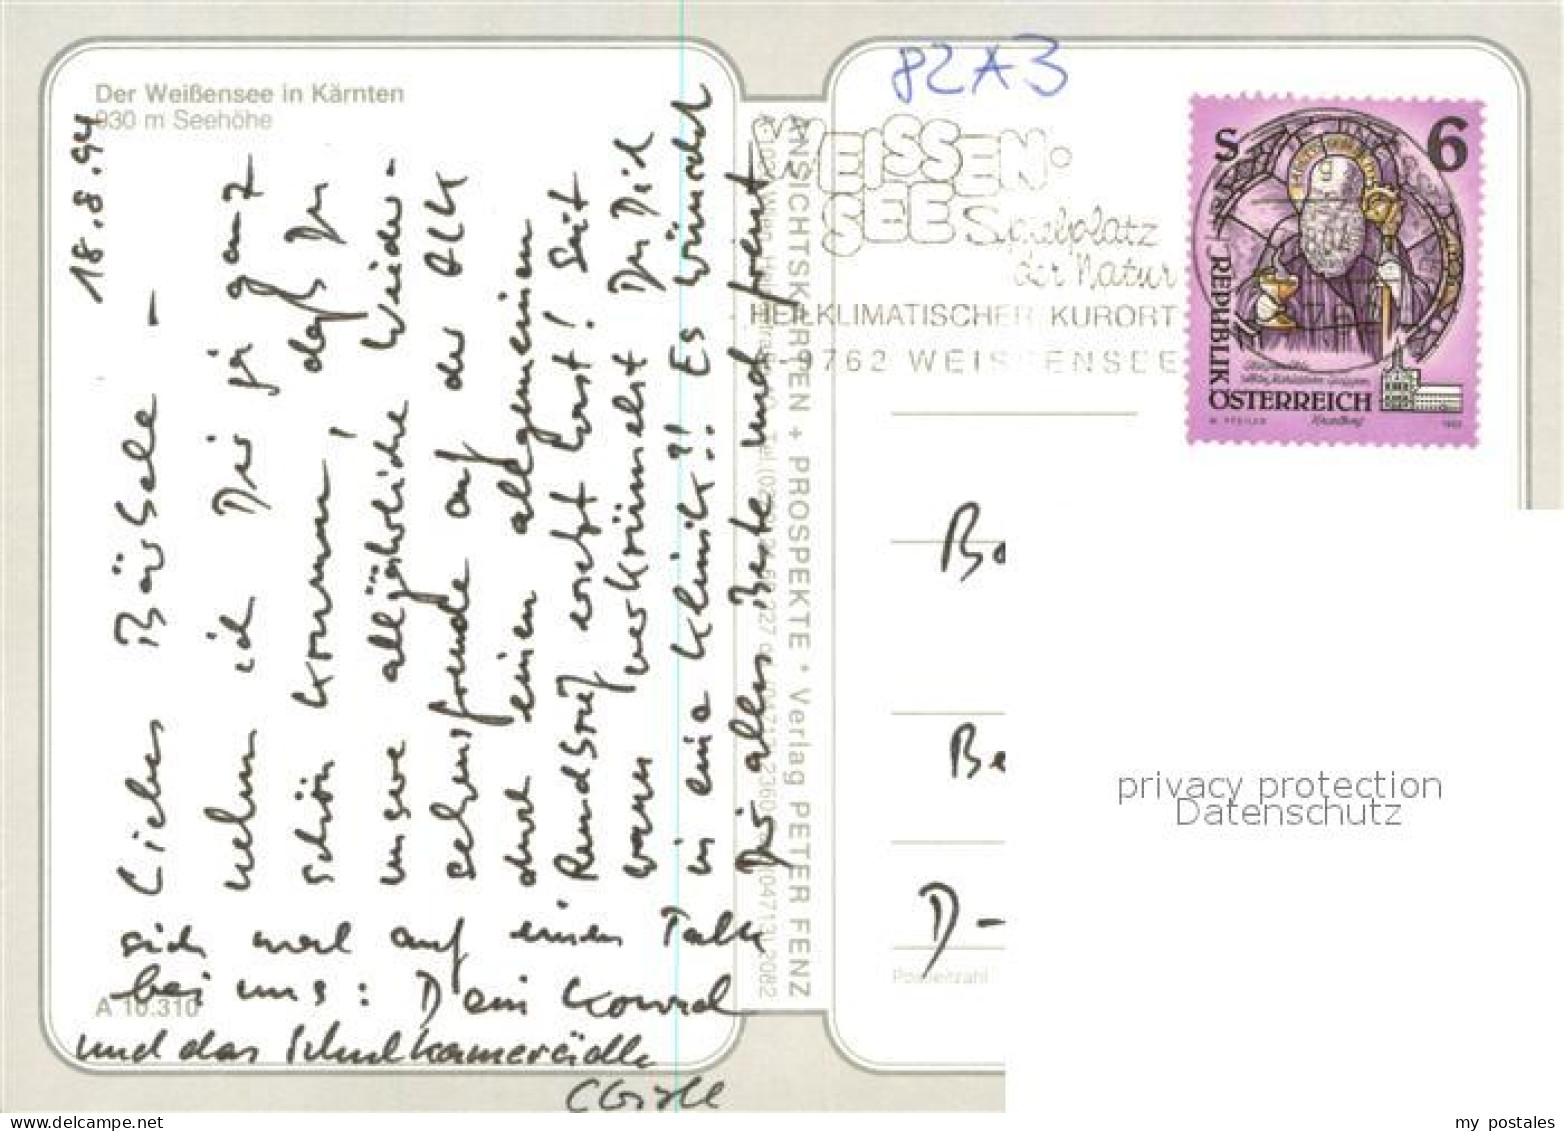 Der Weißensee in Kärnten
930 m Seehöhe
18.8.94
Liebes Bärbele –
nehm ich Dir ja ganz
schön krumm, daß Du
unsre alljährliche Wieder-
sehensfreude auf der Alk
durch einen allgemeinen
Rundbrief ersetzt hast! Seit
wann verkrümelst Du Dich
in eine Klinik?! Es wünscht
Dir alles Beste und freut
sich mal auf einen Talk
bei uns: Dein Konrad
und das Schulkamerädle
A 10.310
ANSICHTSKARTEN + PROSPEKTE * Verlag PETER FENZ
82A3
WEISSEN-
SEE Spielplatz
der Natur
HEILKLIMATISCHER KURORT
A-9762 WEISSENSEE
S 6
REPUBLIK
ÖSTERREICH
Ba
Be
D-
Postleitzahl
privacy protection
Datenschutz
www.delcampe.net
my_postales